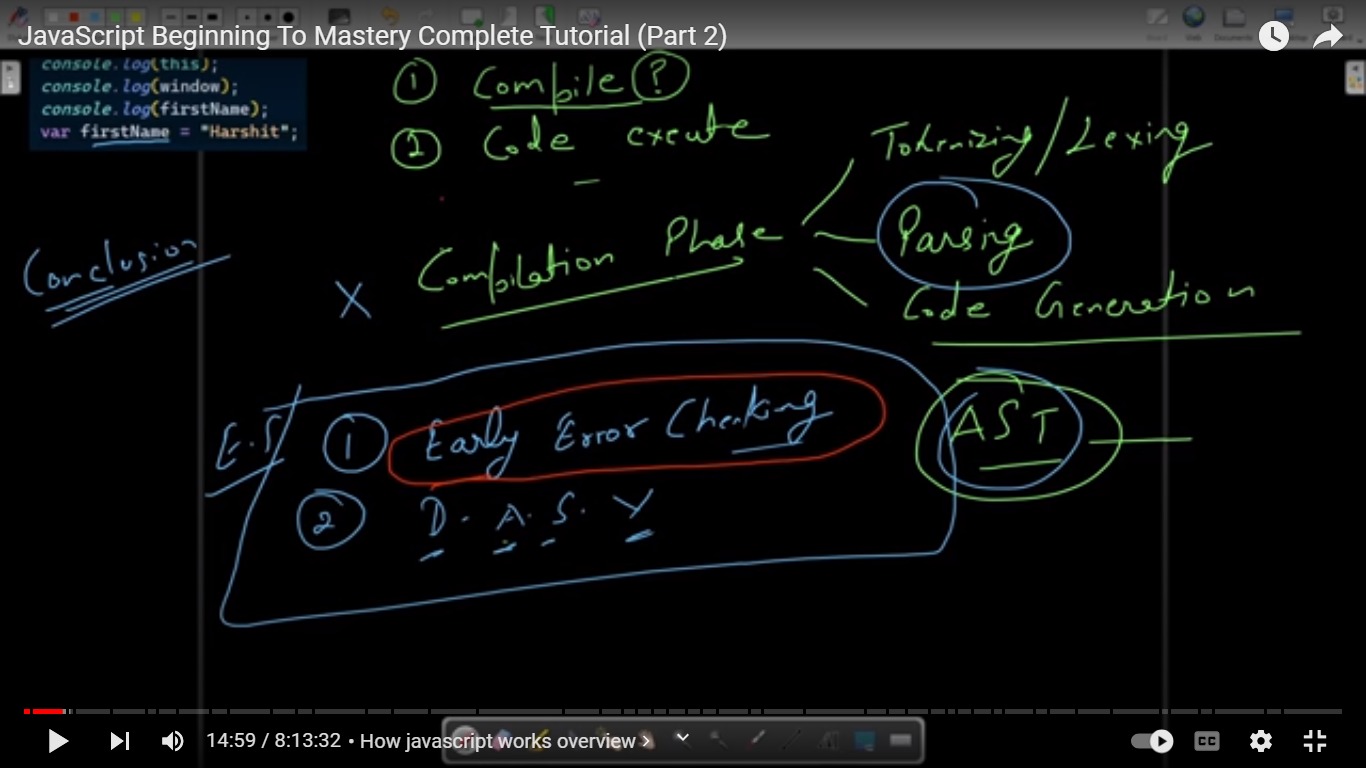 JavaScript Beginning To Mastery Complete Tutorial (Part 2)
console.log(this);
console.log(window);
console.log(firstName);
var firstName = "Harshit";
① Compile ?
② Code execute
Compilation Phase
Tokenizing/Lexing
Parsing
Code Generation
Conclusion
X
E.S
① Early Error Checking
② D. A. S. Y
AST
14:59 / 8:13:32 • How javascript works overview >
CC